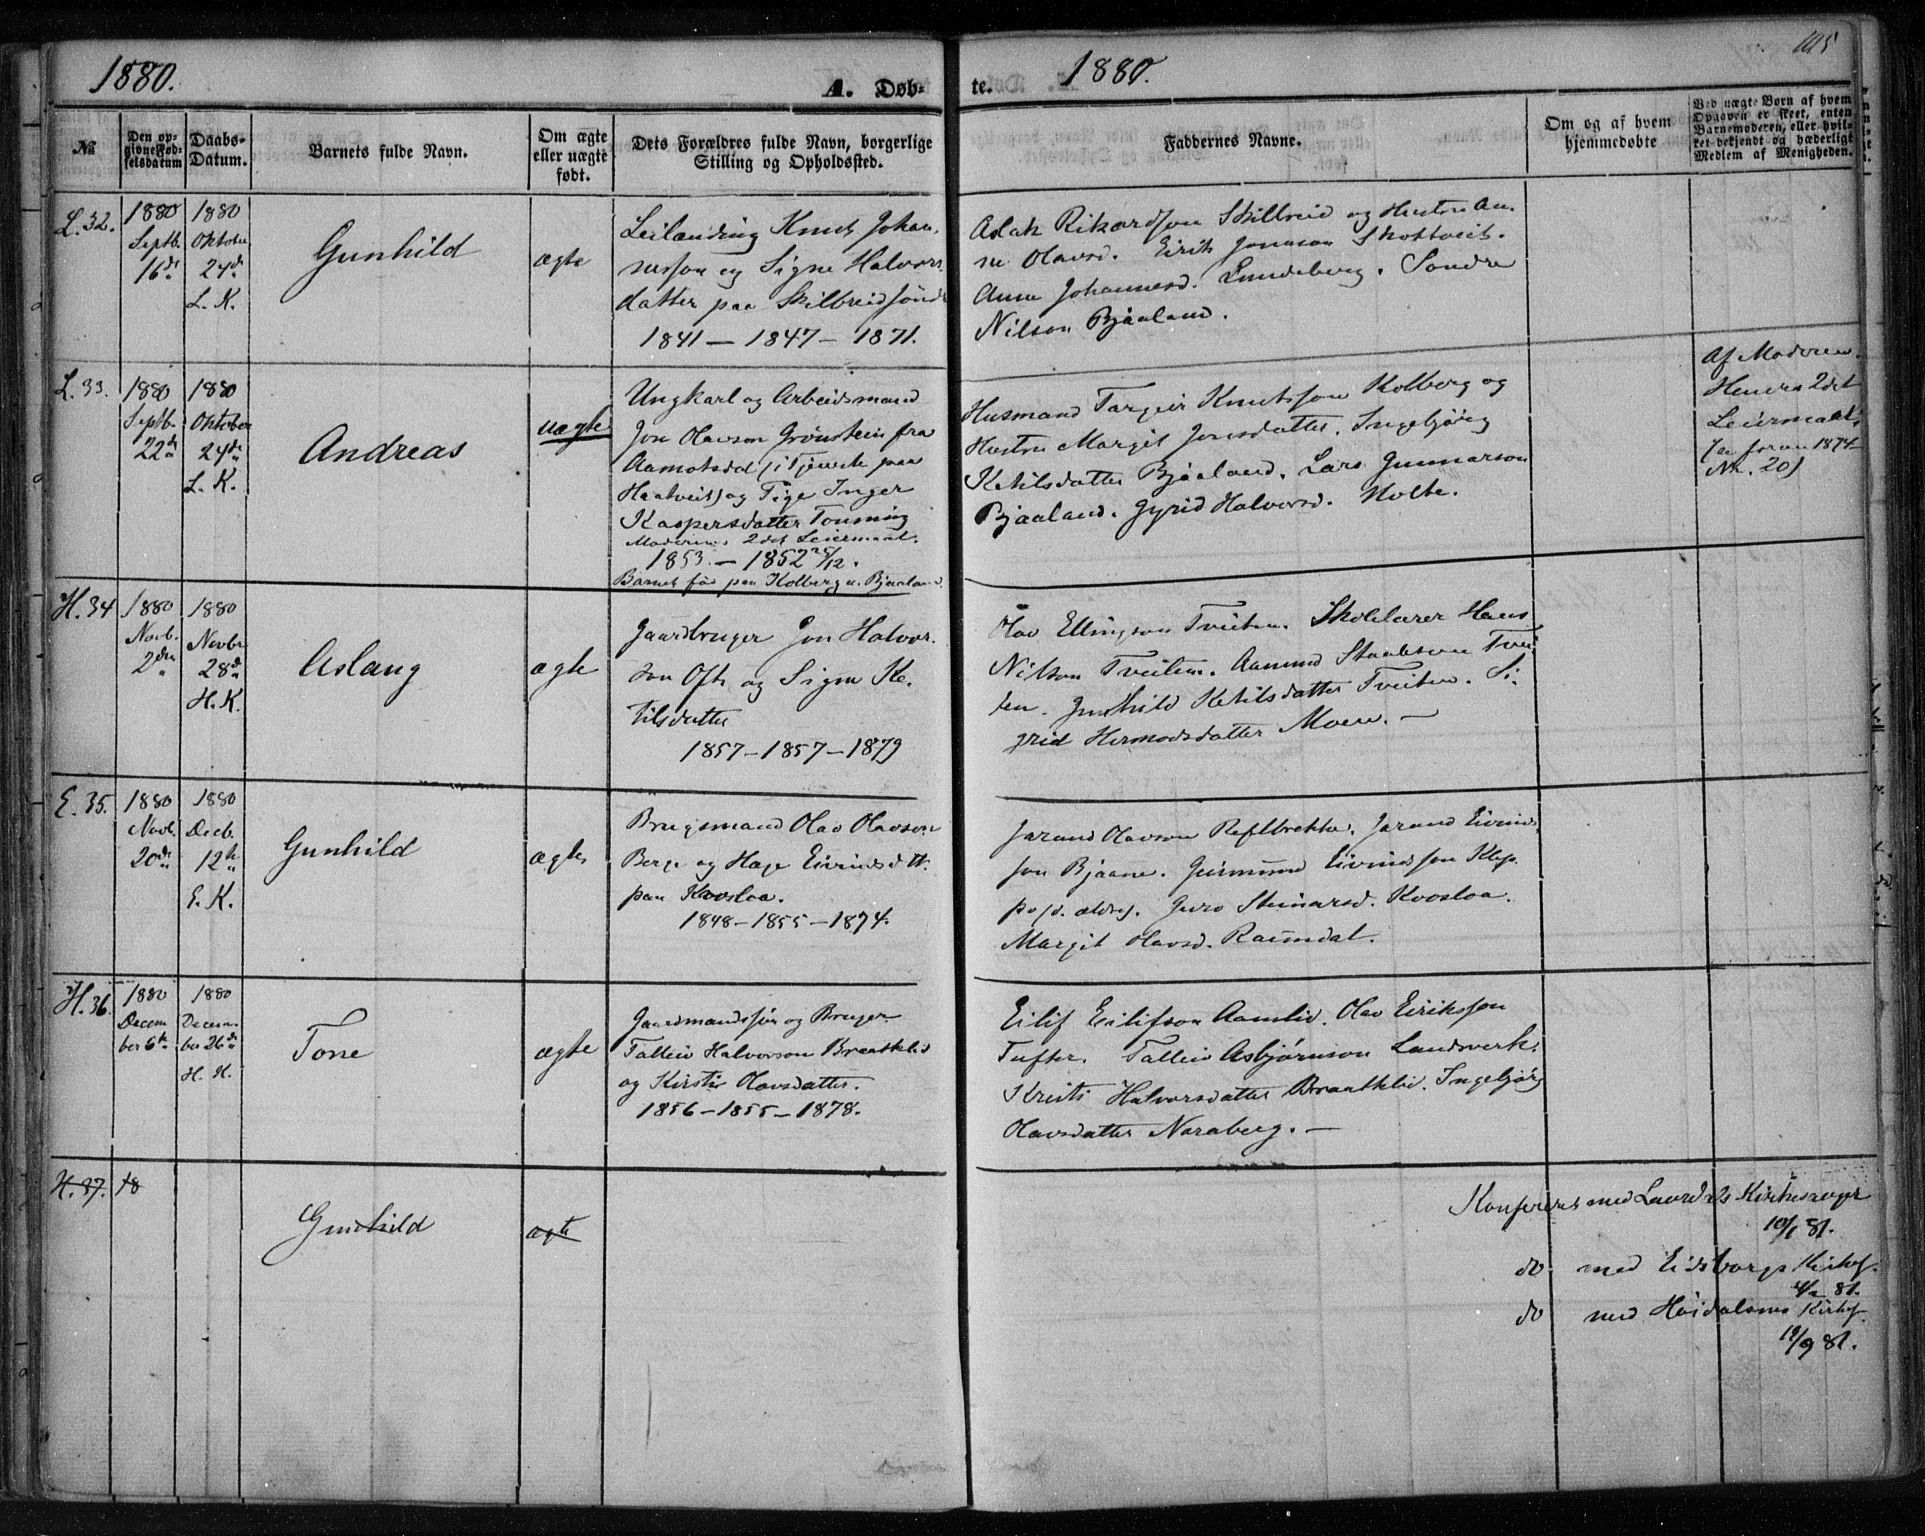 1880.
A. Døb-
te.
1880.
105
№
Den op-
givne Fød-
selsdatum
Daabs-
Datum.
Barnets fulde Navn.
Om ægte
eller uægte
født.
Dets Forældres fulde Navn, borgerlige
Stilling og Opholdssted.
Faddernes Navne.
Om og af hvem
hjemmedøbte
Ved uægte Børn af hvem
Opgaven er skeet, enten
Barnemoderen, eller hvil-
ket bekjendt og hæderligt
Medlem af Menigheden.
L. 32.
1880
Septb.
16de
1880
Oktober
24de
L. K.
Gunhild
ægte
Leilænding Knut Johan-
nesson og Signe Halvors-
datter paa Skilbreid søndre
1841 – 1847 – 1871.
Aslak Rikardson Skilbreid og Hustru An-
ne Olavsd. Eirik Jonsson Skottveit.
Anne Johannesd. Lundeberg. Sondre
Nilson Bjaaland.
L. 33.
1880
Septb.
22de
1880
Oktober
24de
L. K.
Andreas
uægte
Ungkarl og Arbeidsmand
Jon Olavson Grønstein fra
Aamotsdal (i Tjeneste paa
Haatveit) og Pige Inger
Kaspersdatter Tousning
Moderens 2det Leiermaal.
1853. – 1852 25/12.
Barnet født paa Kolberg u. Bjaaland.
Husmand Targeir Knutsson Kolberg og
Hustru Margit Jonsdatter. Ingebjørg
Ketilsdatter Bjaaland. Lars Gunnarson
Bjaaland. Gyrid Halvorsd. Holte.
Af Moderen.
Hendes 2det
Leiermaal,
(se foran 1874
Nr. 20)
H. 34
1880
Novb.
2den
1880
Novbr
28de
H. K.
Aslaug
ægte
Gaardbruger Jon Halvor-
son Ofte og Signe Ke-
tilsdatter
1857 – 1857 – 1879
Olav Ellingson Tveiten. Skolelærer Hans
Nilson Tveiten. Aamund Staalson Tvei-
ten. Gunhild Ketilsdatter Tveiten. Si-
grid Hermodsdatter Moen. –
E. 35.
1880
Novb.
20de
1880
Decb.
12te
E. K.
Gunhild
ægte
Brugsmand Olav Olavson
Berge og Hæge Eivindsdtr.
paa Kvosloa.
1848 – 1855 – 1874.
Jarand Olavson Reflbrekke. Jarand Eivind-
son Bjaane. Geirmund Eivindson Klep-
po s. ældres. Guro Steinarsd. Kvosloa.
Margit Olavsd. Raundal.
H. 36.
1880
Decem-
ber 6te
1880
Decem-
ber 26de
H. K.
Tone
ægte
Gaardmandssøn og Bruger
Talleiv Halvorson Braatklid
og Kirsti Olavsdatter.
1856 – 1855 – 1878.
Eilif Eilifson Aamlid. Olav Eirikson
Tufter. Talleiv Asbjørnson Landsverk.
Kristi Halvorsdatter Braatklid. Ingebjørg
Olavsdatter Noraberg. –
H. 37.
18
Gunhild
ægte
Konfereret med Laurdals Kirkesanger
10/1 81.
do med Eidsborgs Kirkes.
4/2 81.
do med Høidalsmo Kirkes.
19/9 81.